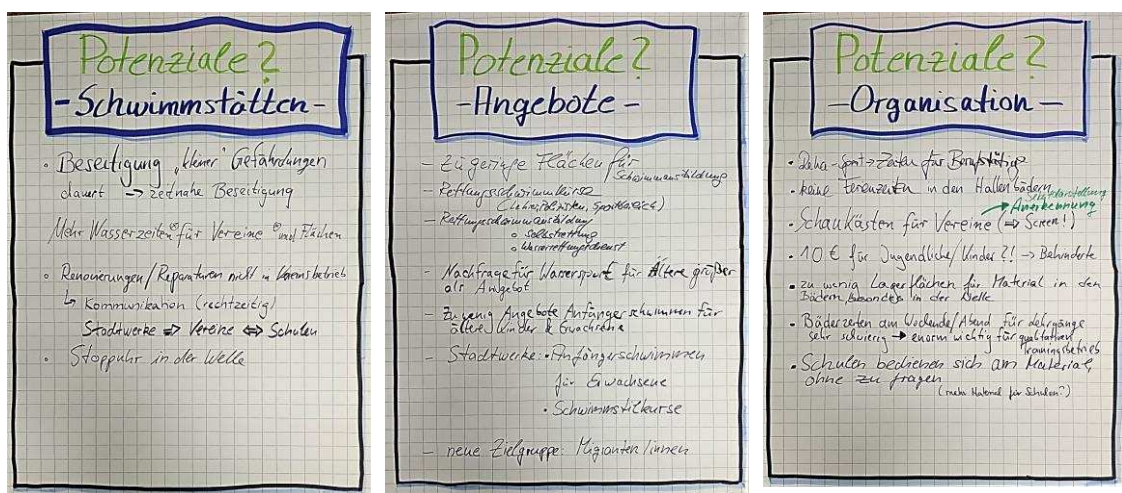 Potenziale?
- Schwimmstätten -
• Beseitigung "kleiner" Gefährdungen
dauert → zeitnahe Beseitigung
Mehr Wasserzeiten für Vereine und Flächen
• Renovierungen/Reparaturen nicht im Vereinsbetrieb
↳ Kommunikation (rechtzeitig)
Stadtwerke ⇒ Vereine ⇔ Schulen
• Stoppuhr in der Welle
Potenziale?
- Angebote -
- Zu geringe Flächen für
Schwimmausbildung
- Rettungsschwimmkurse
(Lehrer, Polizisten, Sportbereich)
- Rettungsschwimmausbildung
○ Selbstrettung
○ Wasserrettungsdienst
- Nachfrage für Wassersport für Ältere größer
als Angebot
- Zu wenig Angebote Anfängerschwimmen für
ältere Kinder & Erwachsene
- Stadtwerke: • Anfängerschwimmen
für Erwachsene
• Schwimmstilkurse
- neue Zielgruppe: Migranten/innen
Potenziale?
- Organisation -
• Reha-Sport → Zeiten für Berufstätige
• keine Ferienzeiten in den Hallenbädern
Selbstdarstellung
Anerkennung
• Schaukästen für Vereine (⇒ Screen!)
• 10 € für Jugendliche/Kinder?! → Behinderte
• zu wenig Lagerflächen für Material in den
Bädern, besonders in der Welle
• Bäderzeiten am Wochende/Abend für Lehrgänge
sehr schwierig → enorm wichtig für qualitativen
Trainingsbetrieb
• Schulen bedienen sich am Material,
ohne zu fragen
(mehr Material für Schulen?)